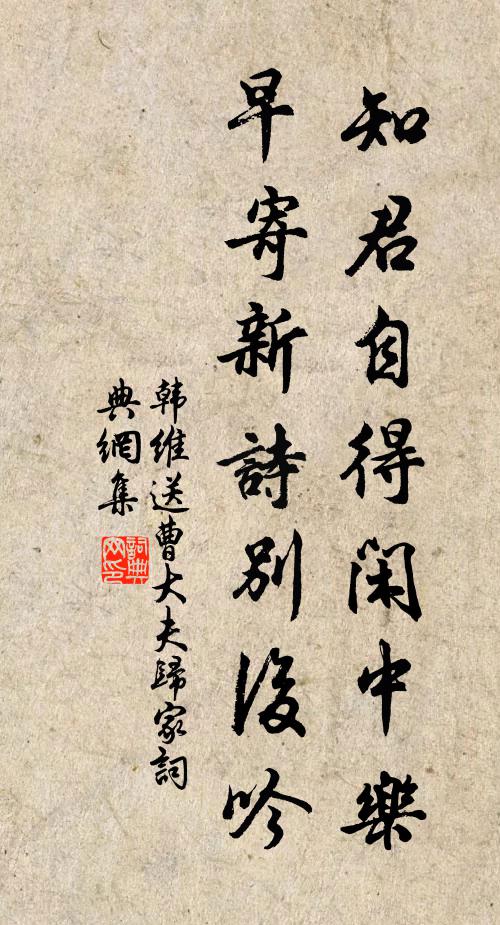 知君自得閑中樂
早寄新詩別後吟
韩維送曹大夫歸家詞
典網集
詞典
网印